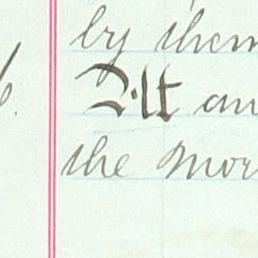 by them
It an
the Mor